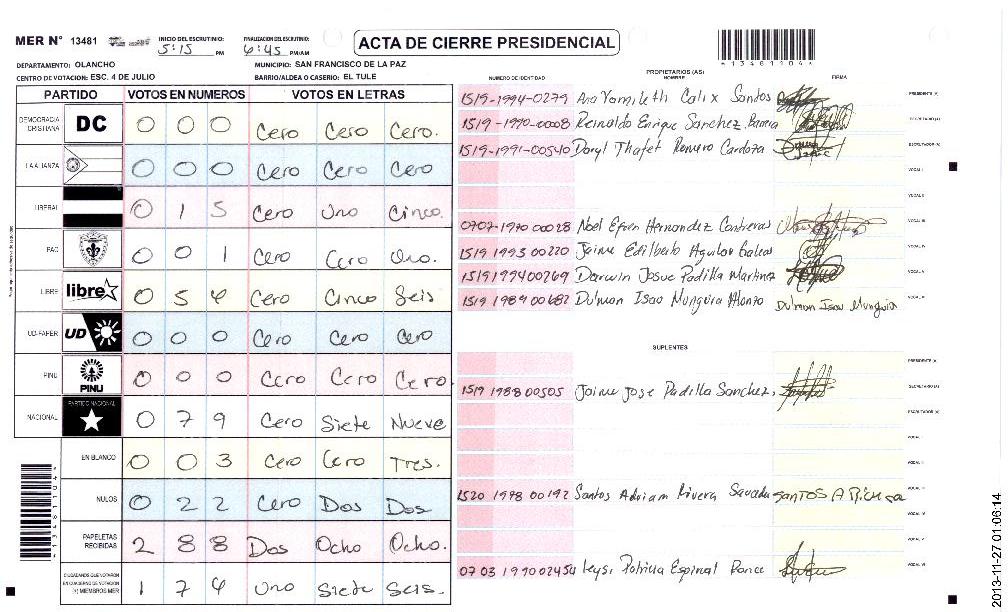 MER N° 13481
INICIO DEL ESCRUTINIO: 5:15 PM
FINALIZACION DEL ESCRUTINIO: 6:45 PM/AM
ACTA DE CIERRE PRESIDENCIAL
DEPARTAMENTO: OLANCHO
MUNICIPIO: SAN FRANCISCO DE LA PAZ
CENTRO DE VOTACION: ESC. 4 DE JULIO
BARRIO/ALDEA O CASERIO: EL TULE
PARTIDO VOTOS EN NUMEROS VOTOS EN LETRAS
DEMOCRACIA CRISTIANA DC 0 0 0 Cero Cero Cero.
LA ALIANZA 0 0 0 Cero Cero Cero
LIBERAL 0 1 5 Cero Uno Cinco.
PAC 0 0 1 Cero Cero Uno.
LIBRE libre 0 5 6 Cero Cinco Seis
UD-FAPER UD 0 0 0 Cero Cero Cero
PINU PINU 0 0 0 Cero Cero Cero.
NACIONAL PARTIDO NACIONAL 0 7 9 Cero Siete Nueve
EN BLANCO 0 0 3 Cero Cero Tres.
NULOS 0 2 2 Cero Dos Dos
PAPELETAS RECIBIDAS 2 8 8 Dos Ocho Ocho.
CIUDADANOS QUE VOTARON EN CUADERNO DE VOTACION (+) MIEMBROS MER 1 7 6 Uno Siete Seis.
NUMERO DE IDENTIDAD
PROPIETARIOS (AS)
NOMBRE
FIRMA
1519-1994-0279 Ana Yamileth Calix Santos PRESIDENTE (A)
1519-1990-0008 Reinaldo Enrique Sanchez SECRETARIO (A)
1519-1991-00540 Daryl Thafet Romero Cardoza ESCRUTADOR (A)
VOCAL I
VOCAL II
0707-1970 00028 Noel Efren Hernandez Contreras VOCAL III
1519 1993 00220 Jaime Edilberto Aguilar VOCAL IV
1519 1994 00269 Darwin Josue Padilla Martinez VOCAL V
1519 1989 00682 Dulman Isao Munguia Alonzo Dulman Isao Munguia
SUPLENTES
PRESIDENTE (A)
1519 1988 00505 Jaime Jose Padilla Sanchez. SECRETARIO (A)
ESCRUTADOR (A)
VOCAL I
VOCAL II
1520 1978 00192 Santos Adriam Rivera VOCAL III
VOCAL IV
VOCAL V
0703 1990 02454 Leysi Patricia Espinal Ponce VOCAL VI
13481104
2013-11-27 01:06:14